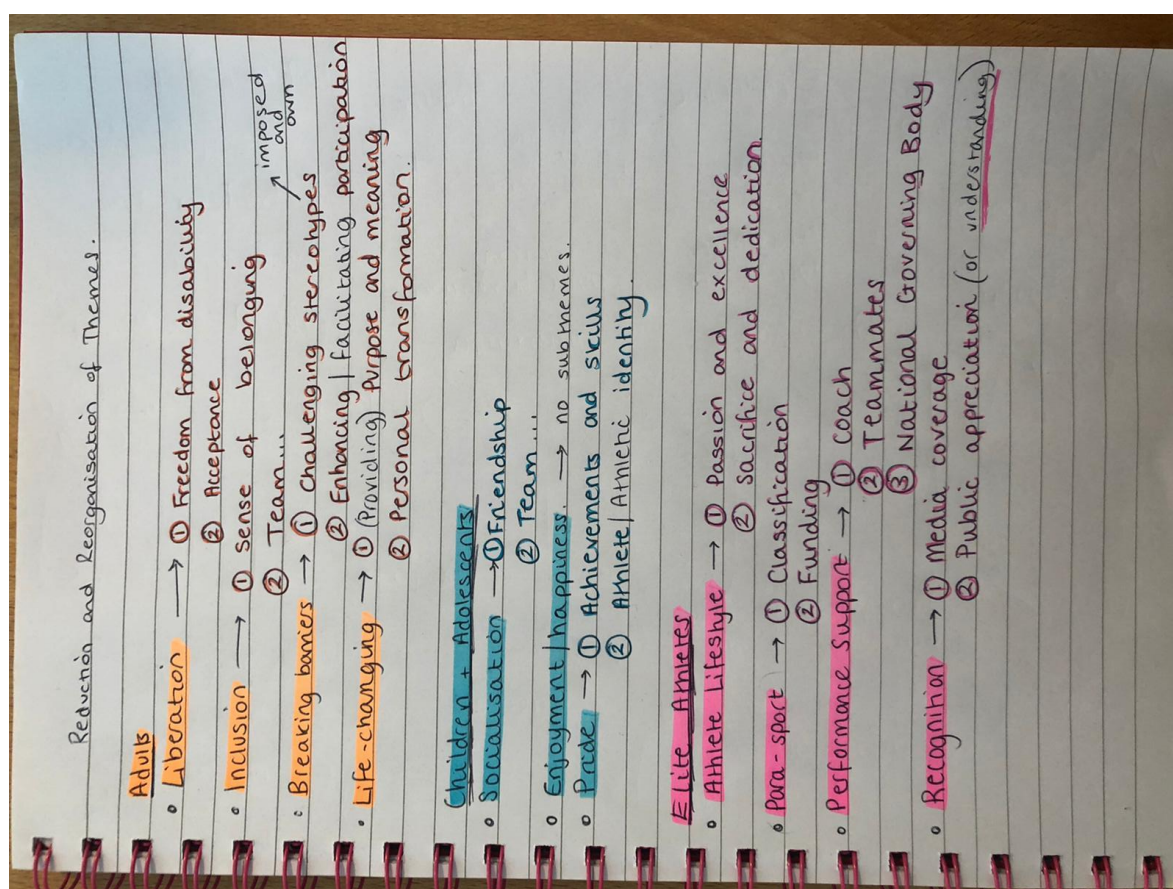 Reduction and Reorganisation of Themes.
Adults
• Liberation → ① Freedom from disability
② Acceptance
• Inclusion → ① sense of belonging
② Team...
imposed and own
• Breaking barriers → ① Challenging stereotypes
② Enhancing / facilitating participation
• Life-changing → ① (Providing) Purpose and meaning
② Personal transformation.
Children + Adolescents
• Socialisation → ① Friendship
② Team...
• Enjoyment / happiness. → no subthemes.
• Pride → ① Achievements and skills
② Athlete / Athletic identity.
Elite Athletes
• Athlete Lifestyle → ① Passion and excellence
② Sacrifice and dedication.
• Para-sport → ① Classification
② Funding
• Performance Support → ① Coach
② Teammates
③ National Governing Body
• Recognition → ① Media coverage
② Public appreciation (or understanding)